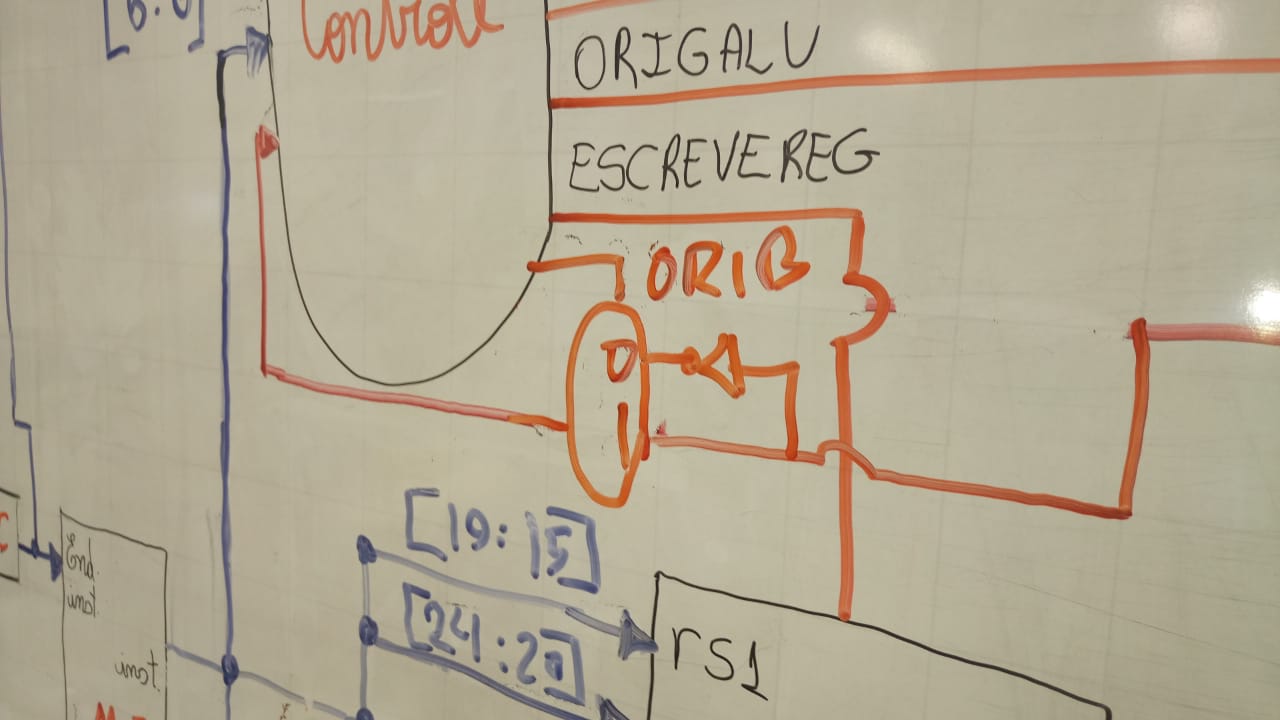 [6:0]
Controle
ORIGALU
ESCREVEREG
ORIB
0
1
[19:15]
[24:20]
C
End.
inst.
inst.
rs1